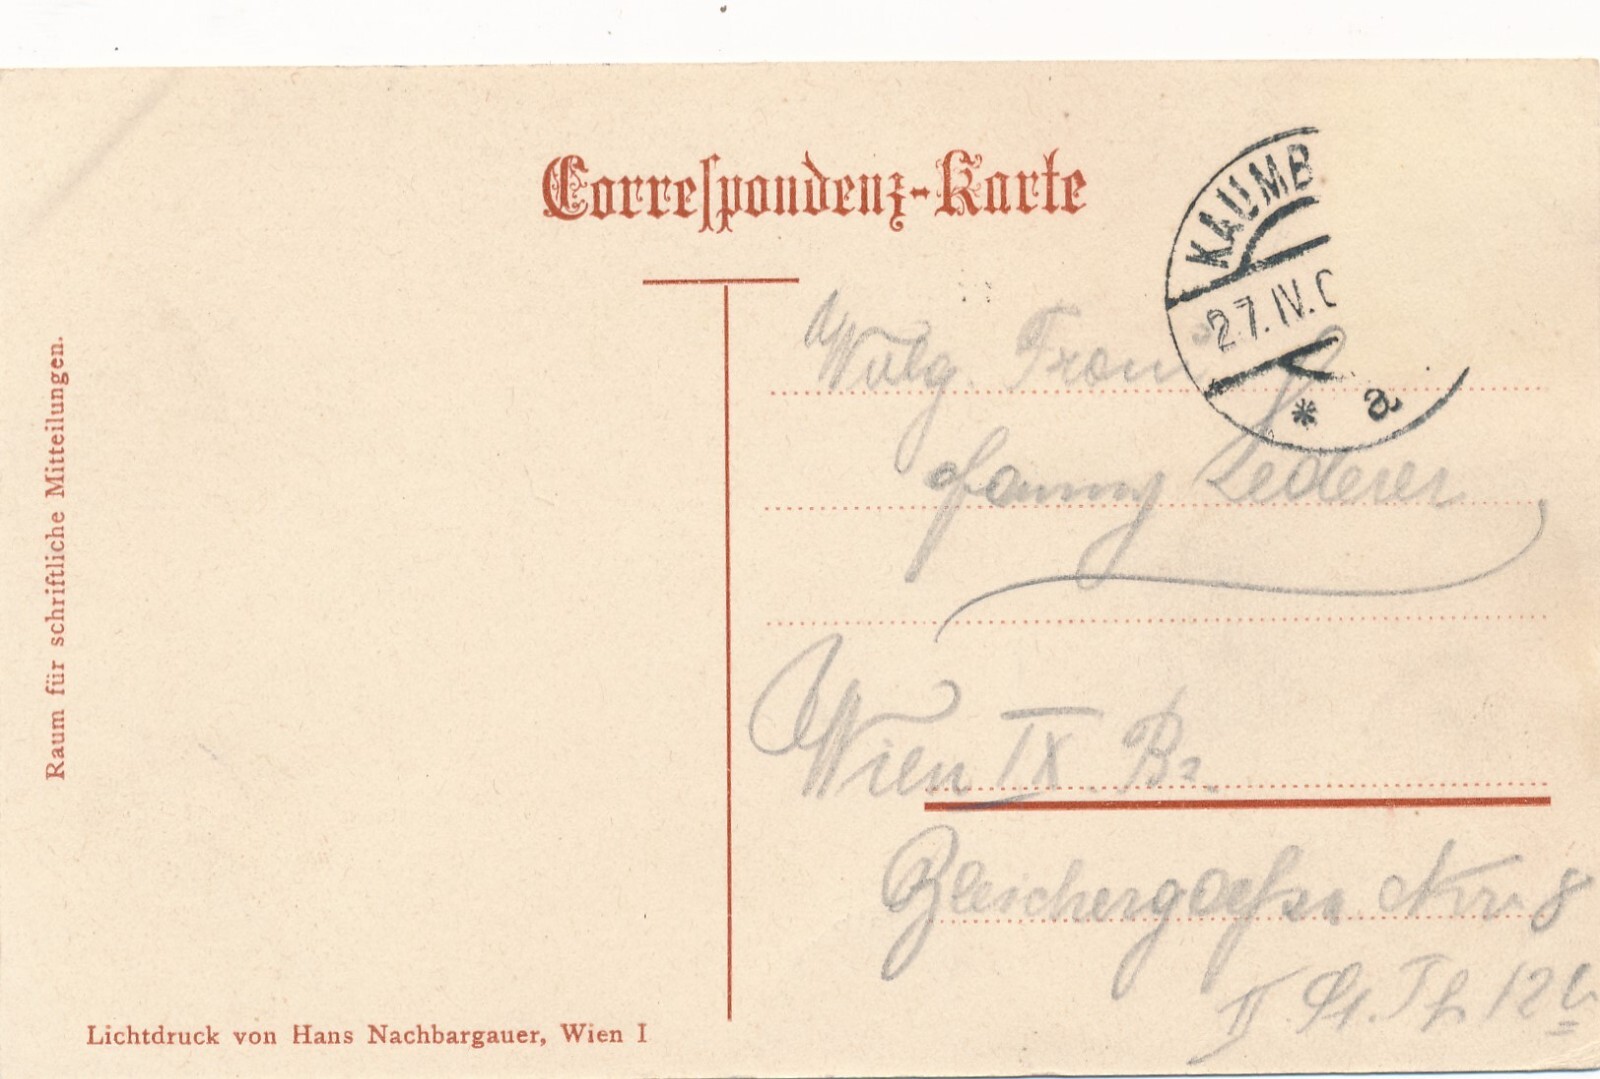 Correspondenz-Karte
KAUMB
27.IV.0
* a
Wolg.
Fanny Lederer
Wien IX. Bz.
Bleichergasse Nr. 8
II. St. Th 12
Raum für schriftliche Mitteilungen.
Lichtdruck von Hans Nachbargauer, Wien I